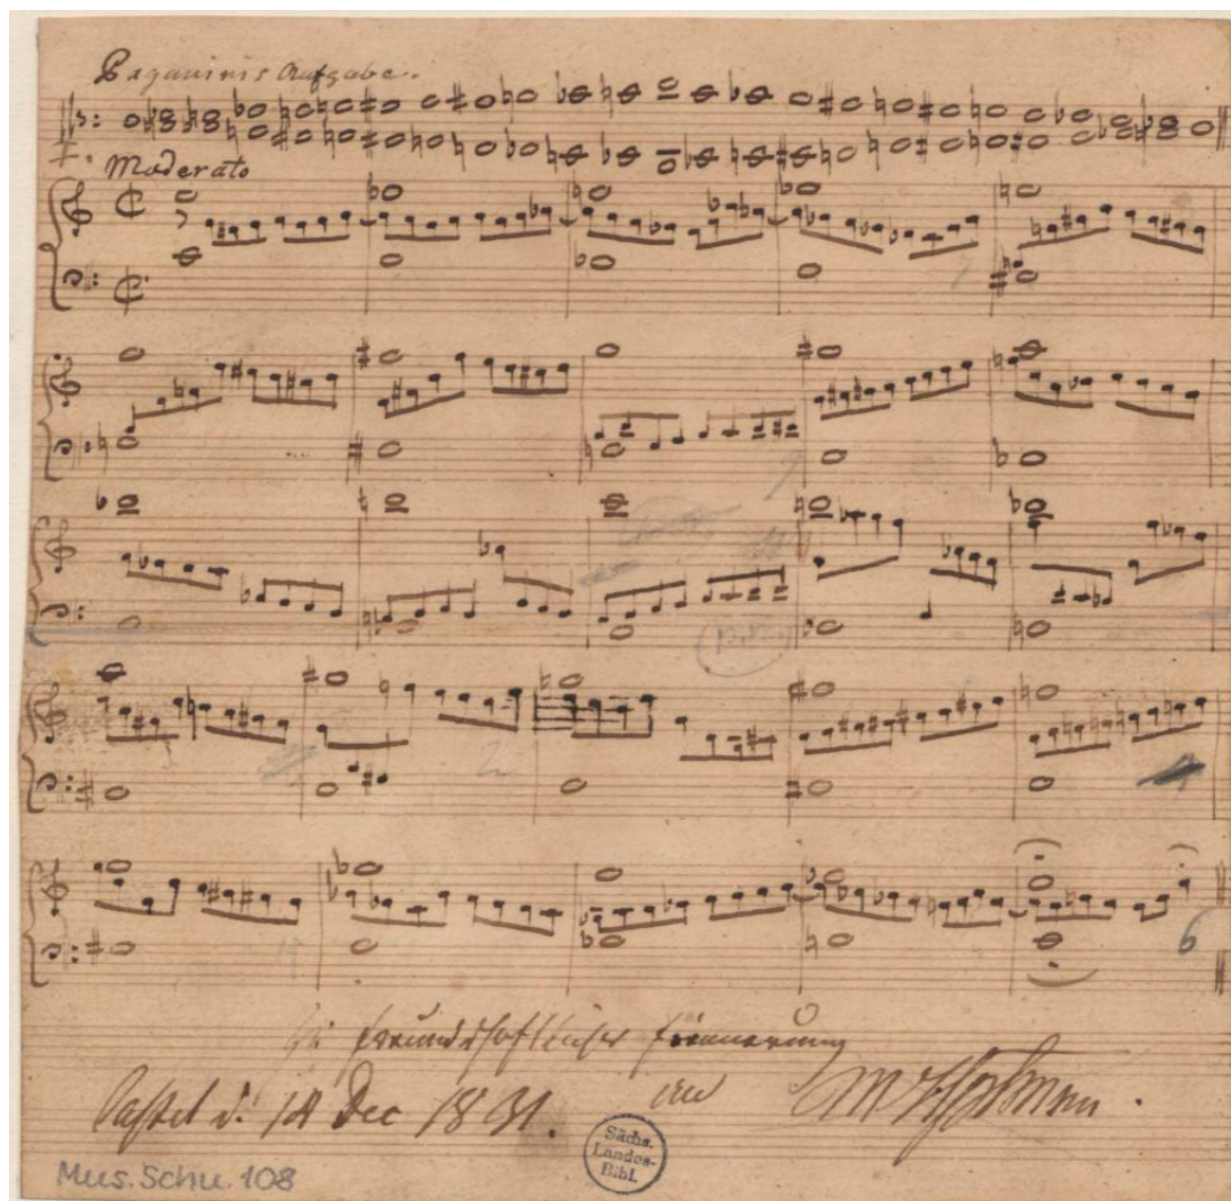 Paganinis Aufgabe.
I.
Moderato
Zu freundschaftlicher Erinnerung
an
Cassel d. 14 Dec 1831.
Sächs.
Landes-
Bibl.
Mus. Schu. 108